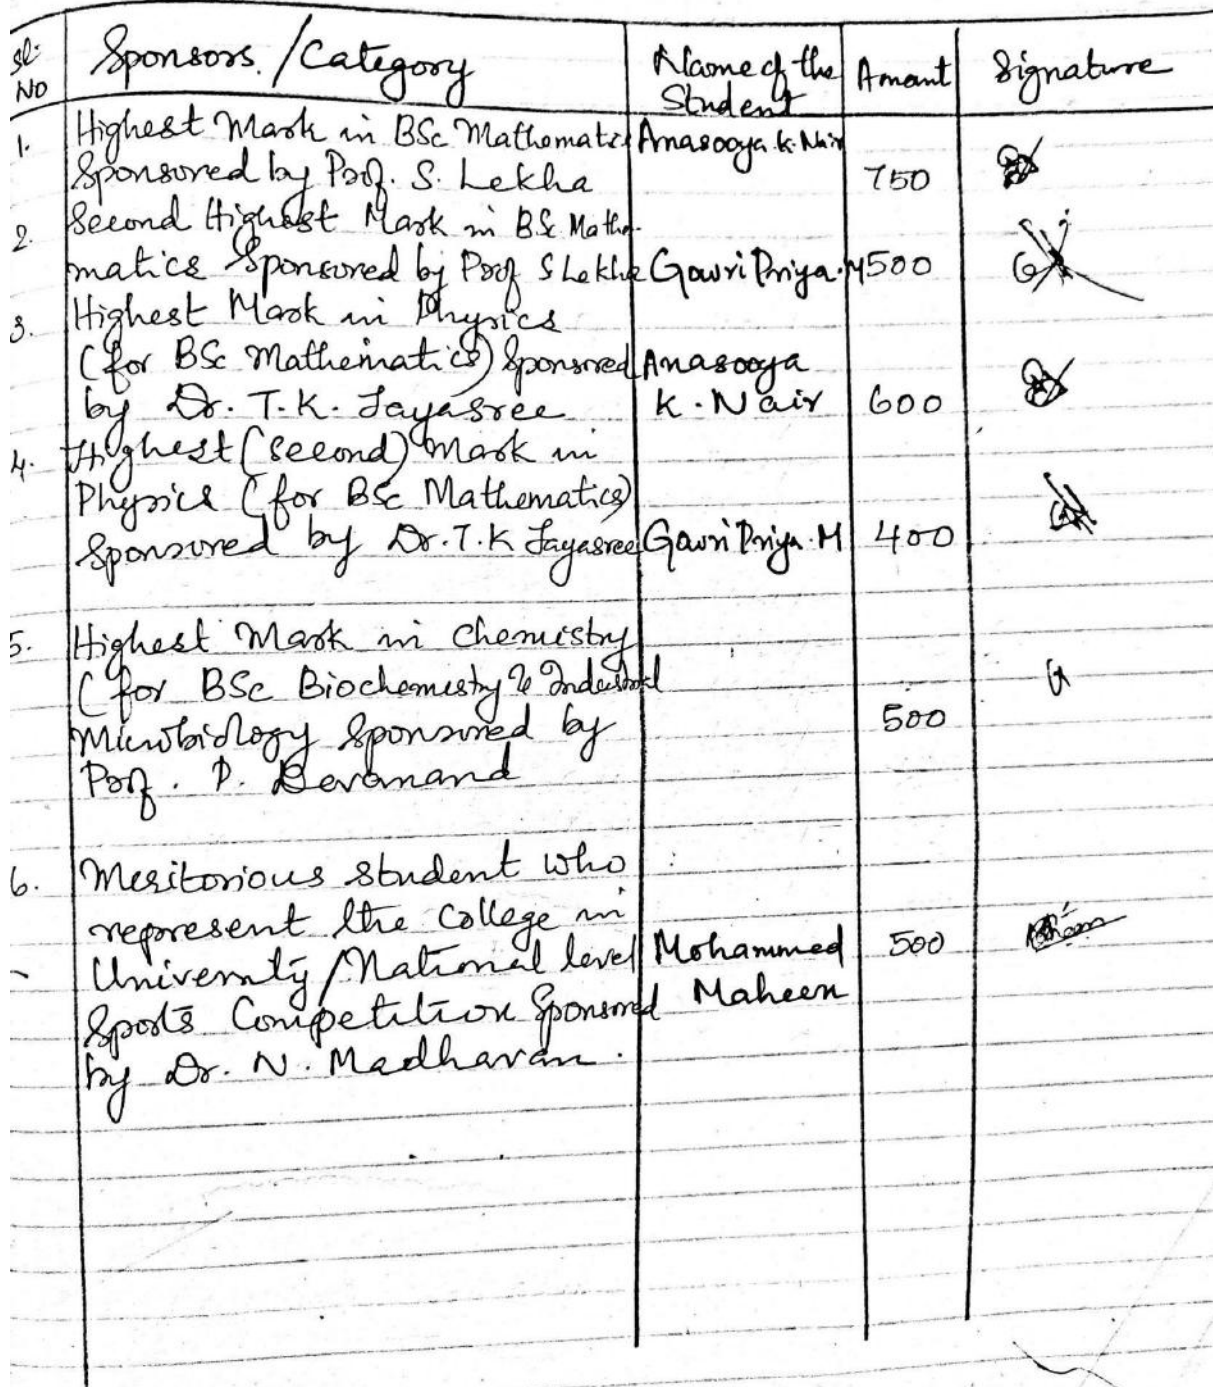 Sl. No Sponsors /Category Name of the Student Amount Signature
1. Highest Mark in BSc Mathematics Anasooya K. Nair
Sponsored by Prof. S. Lekha 750
2. Second Highest Mark in BSc Mathe-
matics Sponsored by Prof S Lekha Gowri Priya. M 500
3. Highest Mark in Physics
(for BSc Mathematics) Sponsored Anasooya
by Dr. T.K. Jayasree K. Nair 600
4. Highest (Second) Mark in
Physics (for BSc Mathematics)
Sponsored by Dr. T.K Jayasree Gowri Priya. M 400
5. Highest Mark in Chemistry
(for BSc Biochemistry & Industrial
Microbiology Sponsored by 500
Prof. P. Devanand
6. Meritorious student who
represent the College in
University/National level Mohammed 500
Sports Competition Sponsored Maheen
by Dr. N. Madhavan.